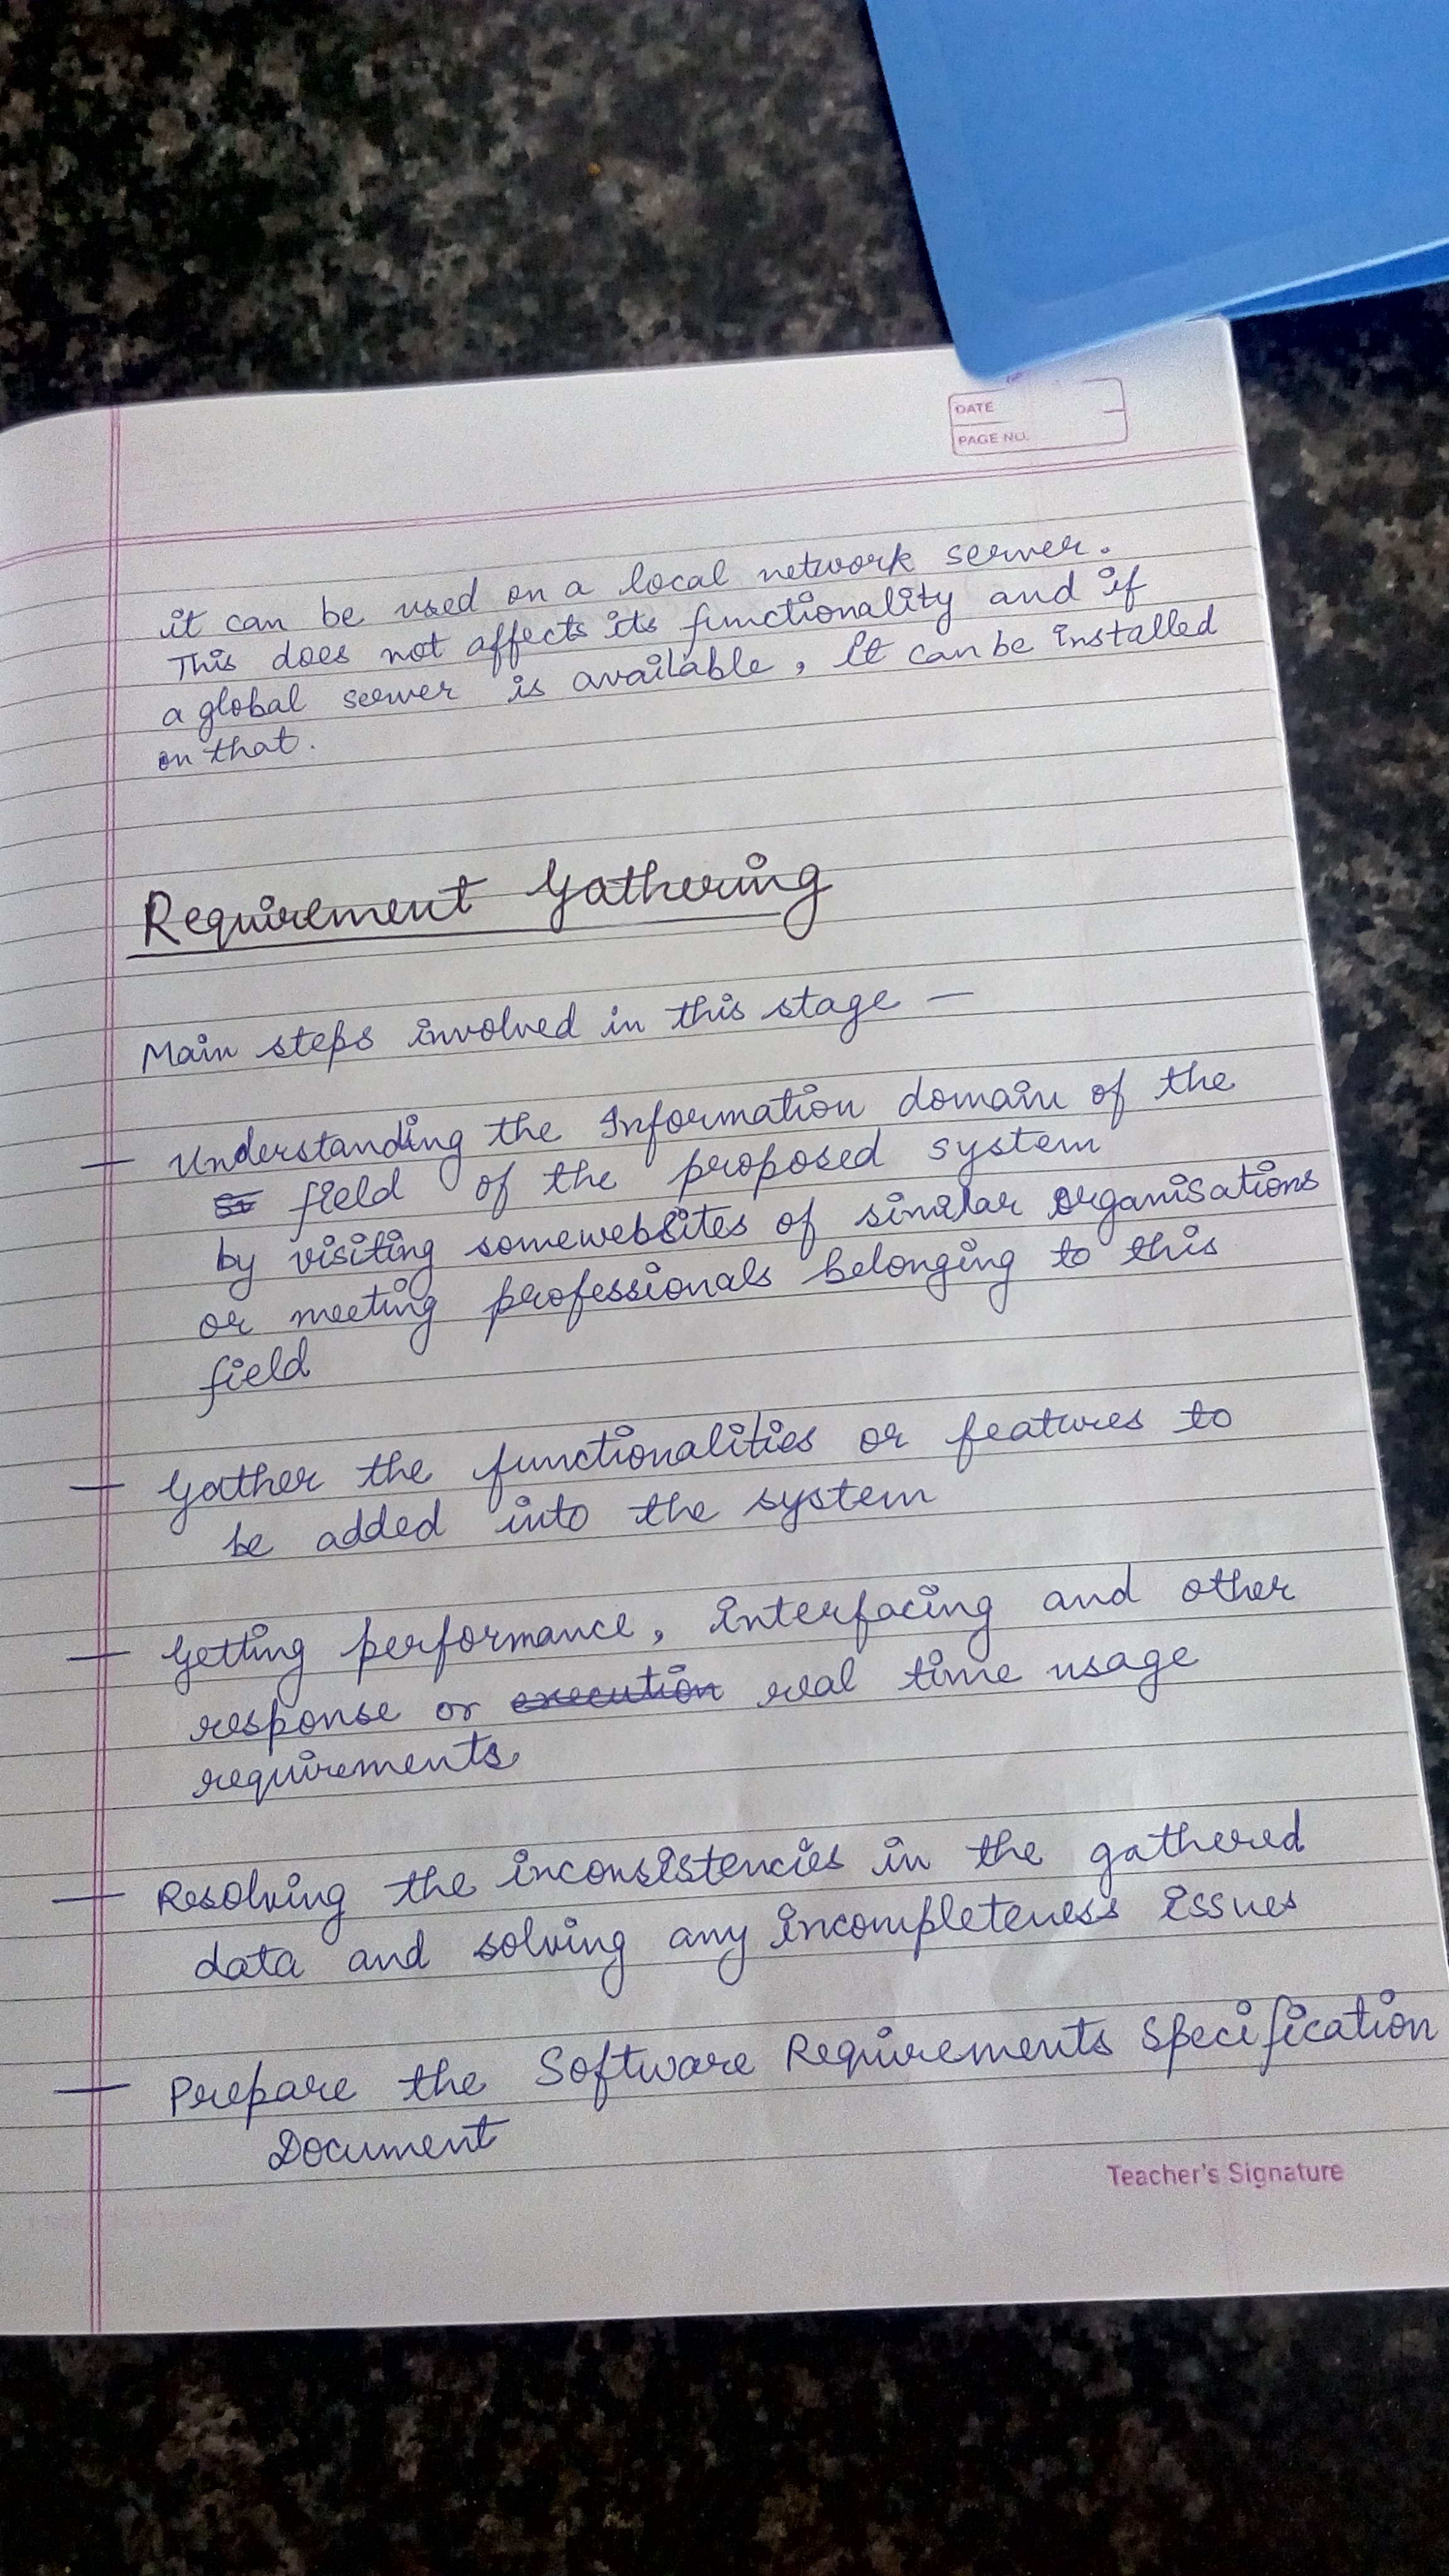 DATE
PAGE NO.
it can be used on a local network server.
This does not affects its functionality and if
a global server is available, it can be installed
on that.
Requirement Gathering
Main steps involved in this stage —
— Understanding the Information domain of the
field of the proposed system
by visiting somewebsites of similar organisations
or meeting professionals belonging to this
field
— Gather the functionalities or features to
be added into the system
— Getting performance, interfacing and other
response or execution real time usage
requirements
— Resolving the inconsistencies in the gathered
data and solving any incompleteness issues
— Prepare the Software Requirements Specification
Document
Teacher's Signature